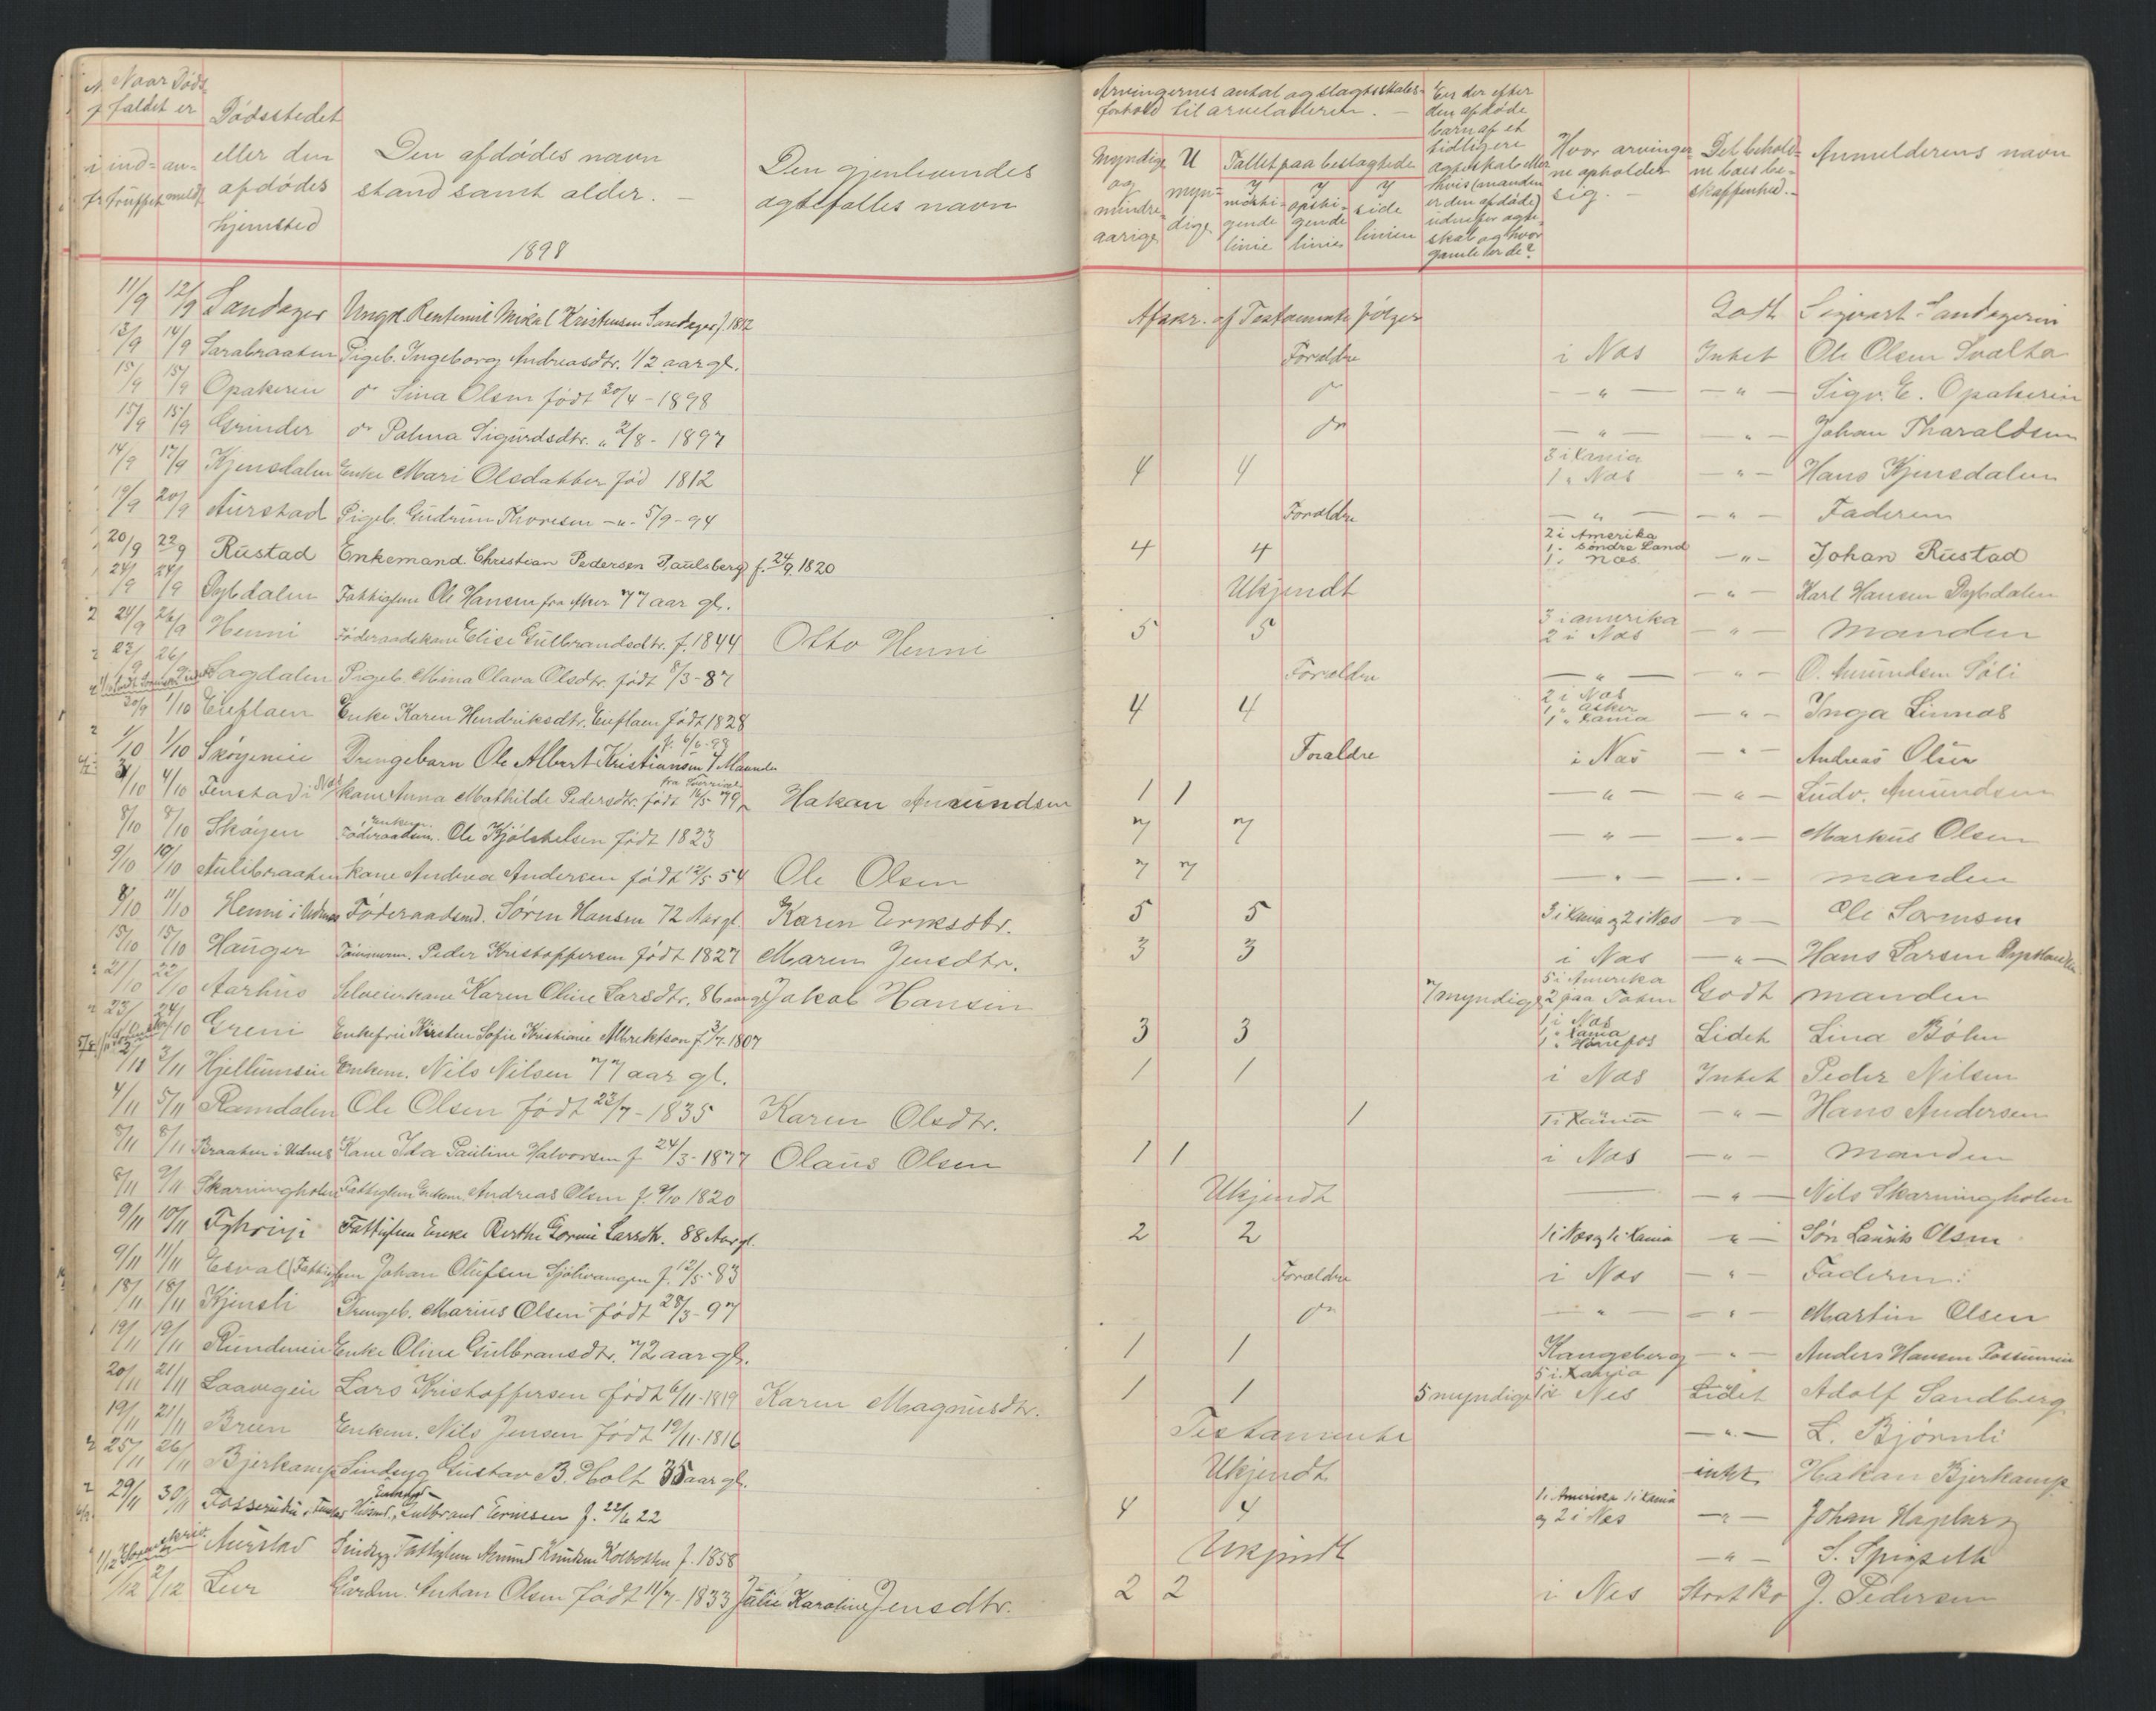 Naar Døds-
faldet er
Dødsstedet
eller den
afdødes
hjemsted
ind-
truffet
an-
meldt
Den afdødes navn
stand samt alder. —
1898
Den gjenlevendes
ægtefælles navn
Arvingernes antal og slægtsskabs-
forhold til arveladeren. —
Myndige
og
mindre-
aarige
U
myn-
dige
Tallet paa beslægtede
I
nedsti-
gende
linie
I
opsti-
gende
linie
I
side
linien
Er der efter
den afdøde
barn af et
tidligere
ægteskab eller
hvis (manden
er den afdøde)
udenfor ægte-
skab og hvor
gamle er de?
Hvor arvinger
ne opholder
sig. —
Det behold-
ne boes be-
skaffenhed. —
Anmelderens navn
11/9 12/9 Sandager Ungk. Rentenist Mikal Kristensen Sandager f. 1812 Afskr. af Testamente følger Godt Sigvart Sandageren
13/9 14/9 Sarabraaten Pigeb. Ingeborg Andreasdtr. 1/2 aar gl. Forældre i Næs Intet Ole Olsen Svalta
15/9 15/9 Opakerie do Sina Olsen født 20/4 - 1898 do — " — — " — Sigv. E. Opakerie
15/9 15/9 Grinder do Palma Sigurdsdtr. " 2/8 - 1897 do — " — — " — Johan Tharaldsen
14/9 17/9 Kjensdalen Enke Mari Olsdatter fød 1812 4 4 3 i Kania 1 " Næs — " — Hans Kjensdalen
19/9 20/9 Aurstad Pigeb. Gudrun Thoresen — " — 5/9 - 94 Forældre — " — — " — Faderen
20/9 22/9 Rustad Enkemand. Christian Pedersen Paulsberg f. 24/9. 1820 4 4 2 i Amerika 1 " Søndre Land 1 " Næs — " — Johan Rustad
24/9 24/9 Dybdalen Fattiglem Ole Hansen fra Aker 77 aar gl. Ukjendt — " — Karl Hansen Dybdalen
24/9 26/9 Henni Føderaadskone Elise Gulbrandsdtr. f. 1844 Otto Henni 5 5 3 i amerika 2 i Næs — " — Manden
23/9 26/9 Sagdalen Pigeb. Mina Olava Olsdtr. født 8/3 - 87 Forældre — " — — " — O. Amundsen Søli
30/9 1/10 Eieflaen Enke Karen Hendriksdtr. Eieflaen født 1828 4 4 2 i Næs 1 " Asker 1 " Kania — " — Inga Linnæs
1/10 1/10 Skøyenie Drengebarn Ole Albert Kristiansen 4 Maander f. 6/6 - 98 Forældre i Næs — " — Andreas Olsen
3/10 4/10 Fenstad i Næs Kone Anna Mathilde Pedersdtr. født 16/5 79 fra Sverrige Hakan Amundsen 1 1 — " — — " — Ludv. Amundsen
8/10 8/10 Skøyen Enkem. Føderaadsm. Ole Kjølstelsen født 1823 7 7 — " — — " — Markus Olsen
9/10 10/10 Aulibraaten Kone Andrea Andersen født 12/5 54 Ole Olsen 7 7 — " — — " — manden
8/10 11/10 Henni i Udenes Føderaadsmd. Søren Hansen 72 Aar gl. Karen Eriksdtr. 5 5 3 i Kania og 2 i Næs — " — Ole Sørensen
15/10 15/10 Hauger Tømmerm. Peder Kristoffersen født 1827 Maren Jensdtr. 3 3 i Næs — " — Hans Larsen
21/10 22/10 Aarhus Selveierkone Karen Oline Larsdtr. 86 aar gl. Jakob Hansen 7 myndige 5 i Amerika 2 paa Toten Godt manden
23/10 24/10 Greni Enkefru Kirsten Sofie Kristiane Albrektson f. 3/7. 1807 3 3 1 i Næs 1 " Kania 1 " Hønefos Lidet Lina Bøhn
2/11 3/11 Hjellumseie Enkem. Nils Nilsen 77 aar gl. 1 1 i Næs Intet Peder Nilsen
4/11 5/11 Ramdalen Ole Olsen født 23/7 - 1835 Karen Olsdtr. 1 1 i Kania — " — Hans Andersen
8/11 8/11 Braaten i Udnes Kone Ida Pauline Halvorsen f. 24/3 - 1877 Olaus Olsen 1 1 i Næs — " — Manden
8/11 9/11 Skarningholen Fattiglem Enkem. Andreas Olsen f. 9/10 1820 Ukjendt — " — Nils Skarningholen
9/11 10/11 Fattiglem Enke Berthe Larsdtr. 88 Aar gl. 2 2 1 i Næs og 1 i Kania — " — Søn Laurits Olsen
9/11 11/11 Esval (Fattiglem Johan Olufsen Sjølivangen f. 12/5 - 83 Forældre i Næs — " — Faderen
18/11 18/11 Kjensli Drengeb. Marius Olsen født 28/3 - 97 do — " — — " — Martin Olsen
19/11 19/11 Rundenie Enke Oline Gulbransdtr. 72 aar gl. 1 1 Kongsberg — " — Anders Hansen Fossumeie
20/11 21/11 Laavegeie Lars Kristoffersen født 6/11 - 1819 Karen Magnusdtr. 1 1 5 myndige 5 i Kania 1 i Nes Lidet Adolf Sandberg
19/11 21/11 Breen Enkem. Nils Jensen født 19/11 - 1816 Testamente — " — L. Bjørnli
25/11 26/11 Bjerkamp Sindsyg Gustav B. Holt 35 aar gl. Ukjendt intet Hakan Bjerkamp
29/11 30/11 Husmd. Gulbrand f. 22/6 22 4 4 1 i Amerika 1 i Kania og 2 i Næs — " — Johan Hagaberg
1/12 Aurstad Sindsyg Fattiglem Amund Knudsen Kolbotten f. 1858 Ukjendt — " — S. Spigseth
1/12 2/12 Leer Gaardm. Anhan Olsen født 11/7 - 1833 Julie Karoline Jensdtr. 2 2 i Nes Stort Bo J. Pedersen